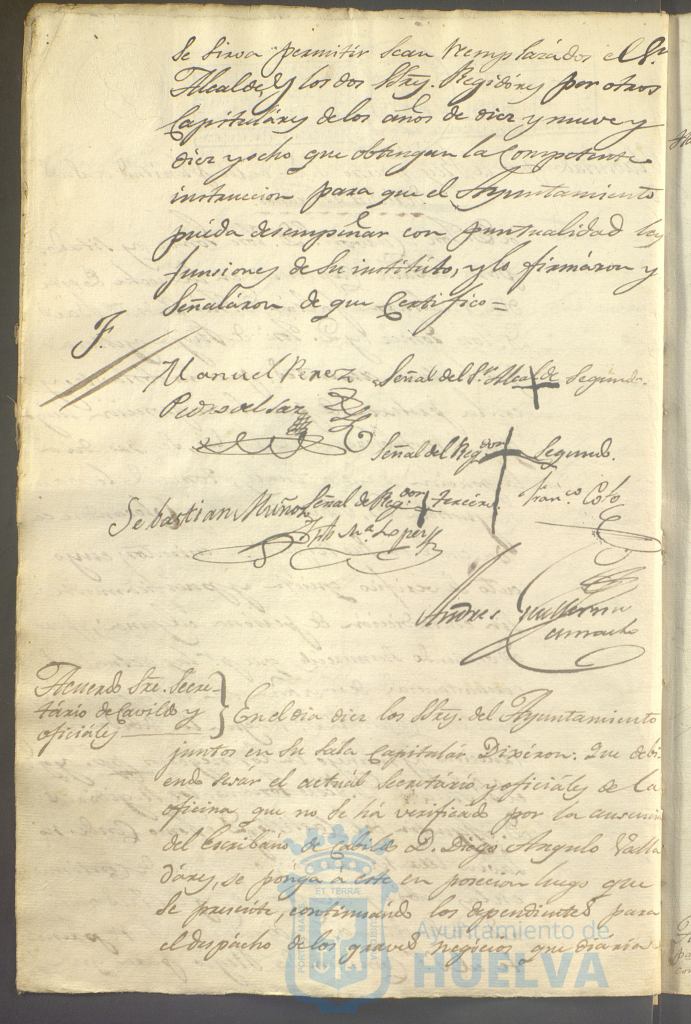 se sirva permitir sean remplazados el Sr.
Alcalde, y los dos SSres. Regidores por otros
Capitulares de los años de diez y nueve y
diez y ocho que obtengan la Competente
instruccion para que el Ayuntamiento
pueda desempeñar con puntualidad las
funsiones de su instituto, y lo firmáron y
Señaláron de que Certifico =
F.
Manuel Perez Señal del Sr. Alcalde Segundo.
Pedro del Saz
Señal del Regdor Segundo.
Sebastian Muñoz Señal del Regdor tercero. Franco. Coto
Jph Ma. Lopez
Andres Guillermo
Camacho
Acuerdo Sre. Secre-
tário de Cavildo y
oficiáles
En el dia diez los SSres. del Ayuntamiento
juntos en su Sala Capitulár Dixéron: Que debi
endo el actuál Secretário y oficiáles de la
oficina que no se há verificado por la ausencia
del Escribano de Cabildo D. Diego Angulo Valla
dáres, se ponga a este en posecion luego que
se presente, continuando los dependientes para
el despácho de los graves negócios que diaria
ET TERRAE
Ayuntamiento de
HUELVA